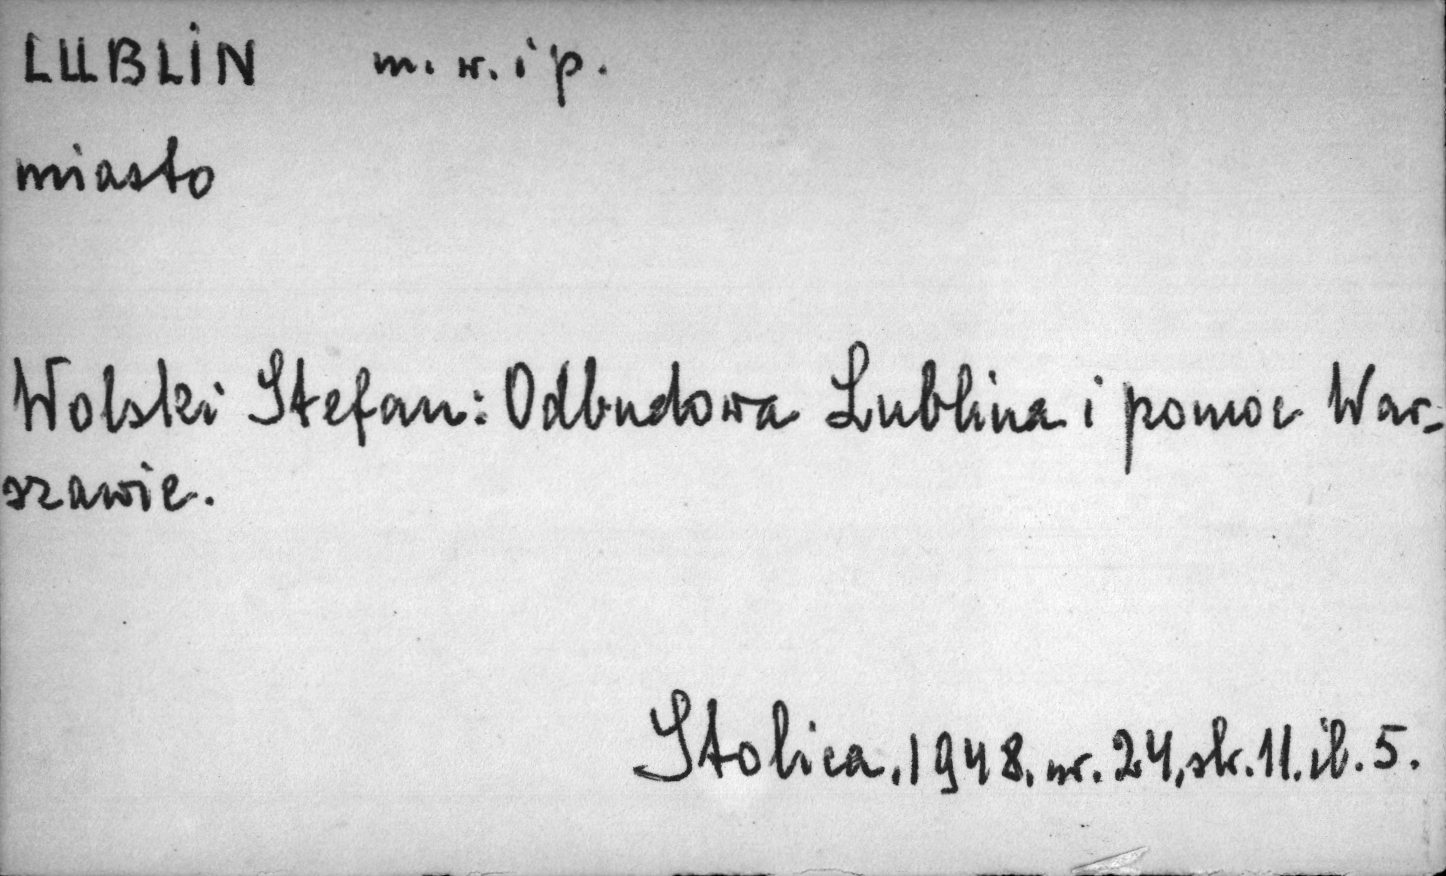 LUBLIN m. w. i p.
miasto
Wolski Stefan: Odbudowa Lublina i pomoc War-
szawie.
Stolica. 1948. nr. 24, str. 11. il. 5.